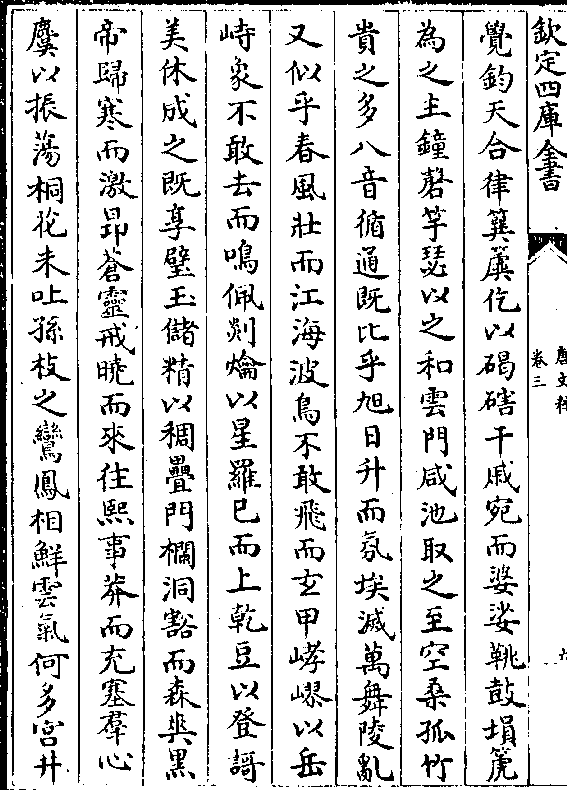 欽定四庫全書
唐文粹
卷三
六
覺鈞天合律簨簴仡以碣磍干戚宛而婆娑鞉鼓塤箎
為之主鐘磬竽瑟以之和雲門咸池取之至空桑孤竹
貴之多八音循通既比乎旭日升而氛埃滅萬舞陵亂
又似乎春風壯而江海波鳥不敢飛而玄甲崪嵺以岳
峙象不敢去而鳴佩剡爚以星羅已而上乾豆以登謌
美休成之既享璧玉儲精以稠疊門欄洞豁而森爽黑
帝歸寒而激昻蒼靈戒曉而來往熙事莽而充塞羣心
麌以振蕩桐花未吐孫枝之鸞鳳相鮮雲氣何多宫井